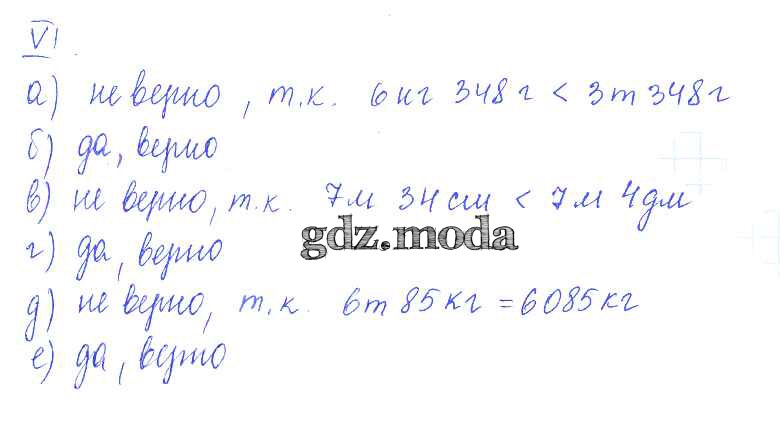 VI.
а) не верно, т.к. 6кг 348г < 3т 348г
б) да, верно
в) не верно, т.к. 7м 34см < 7м 4дм
г) да, верно
gdz.moda
д) не верно, т.к. 6т 85кг = 6085кг
е) да, верно